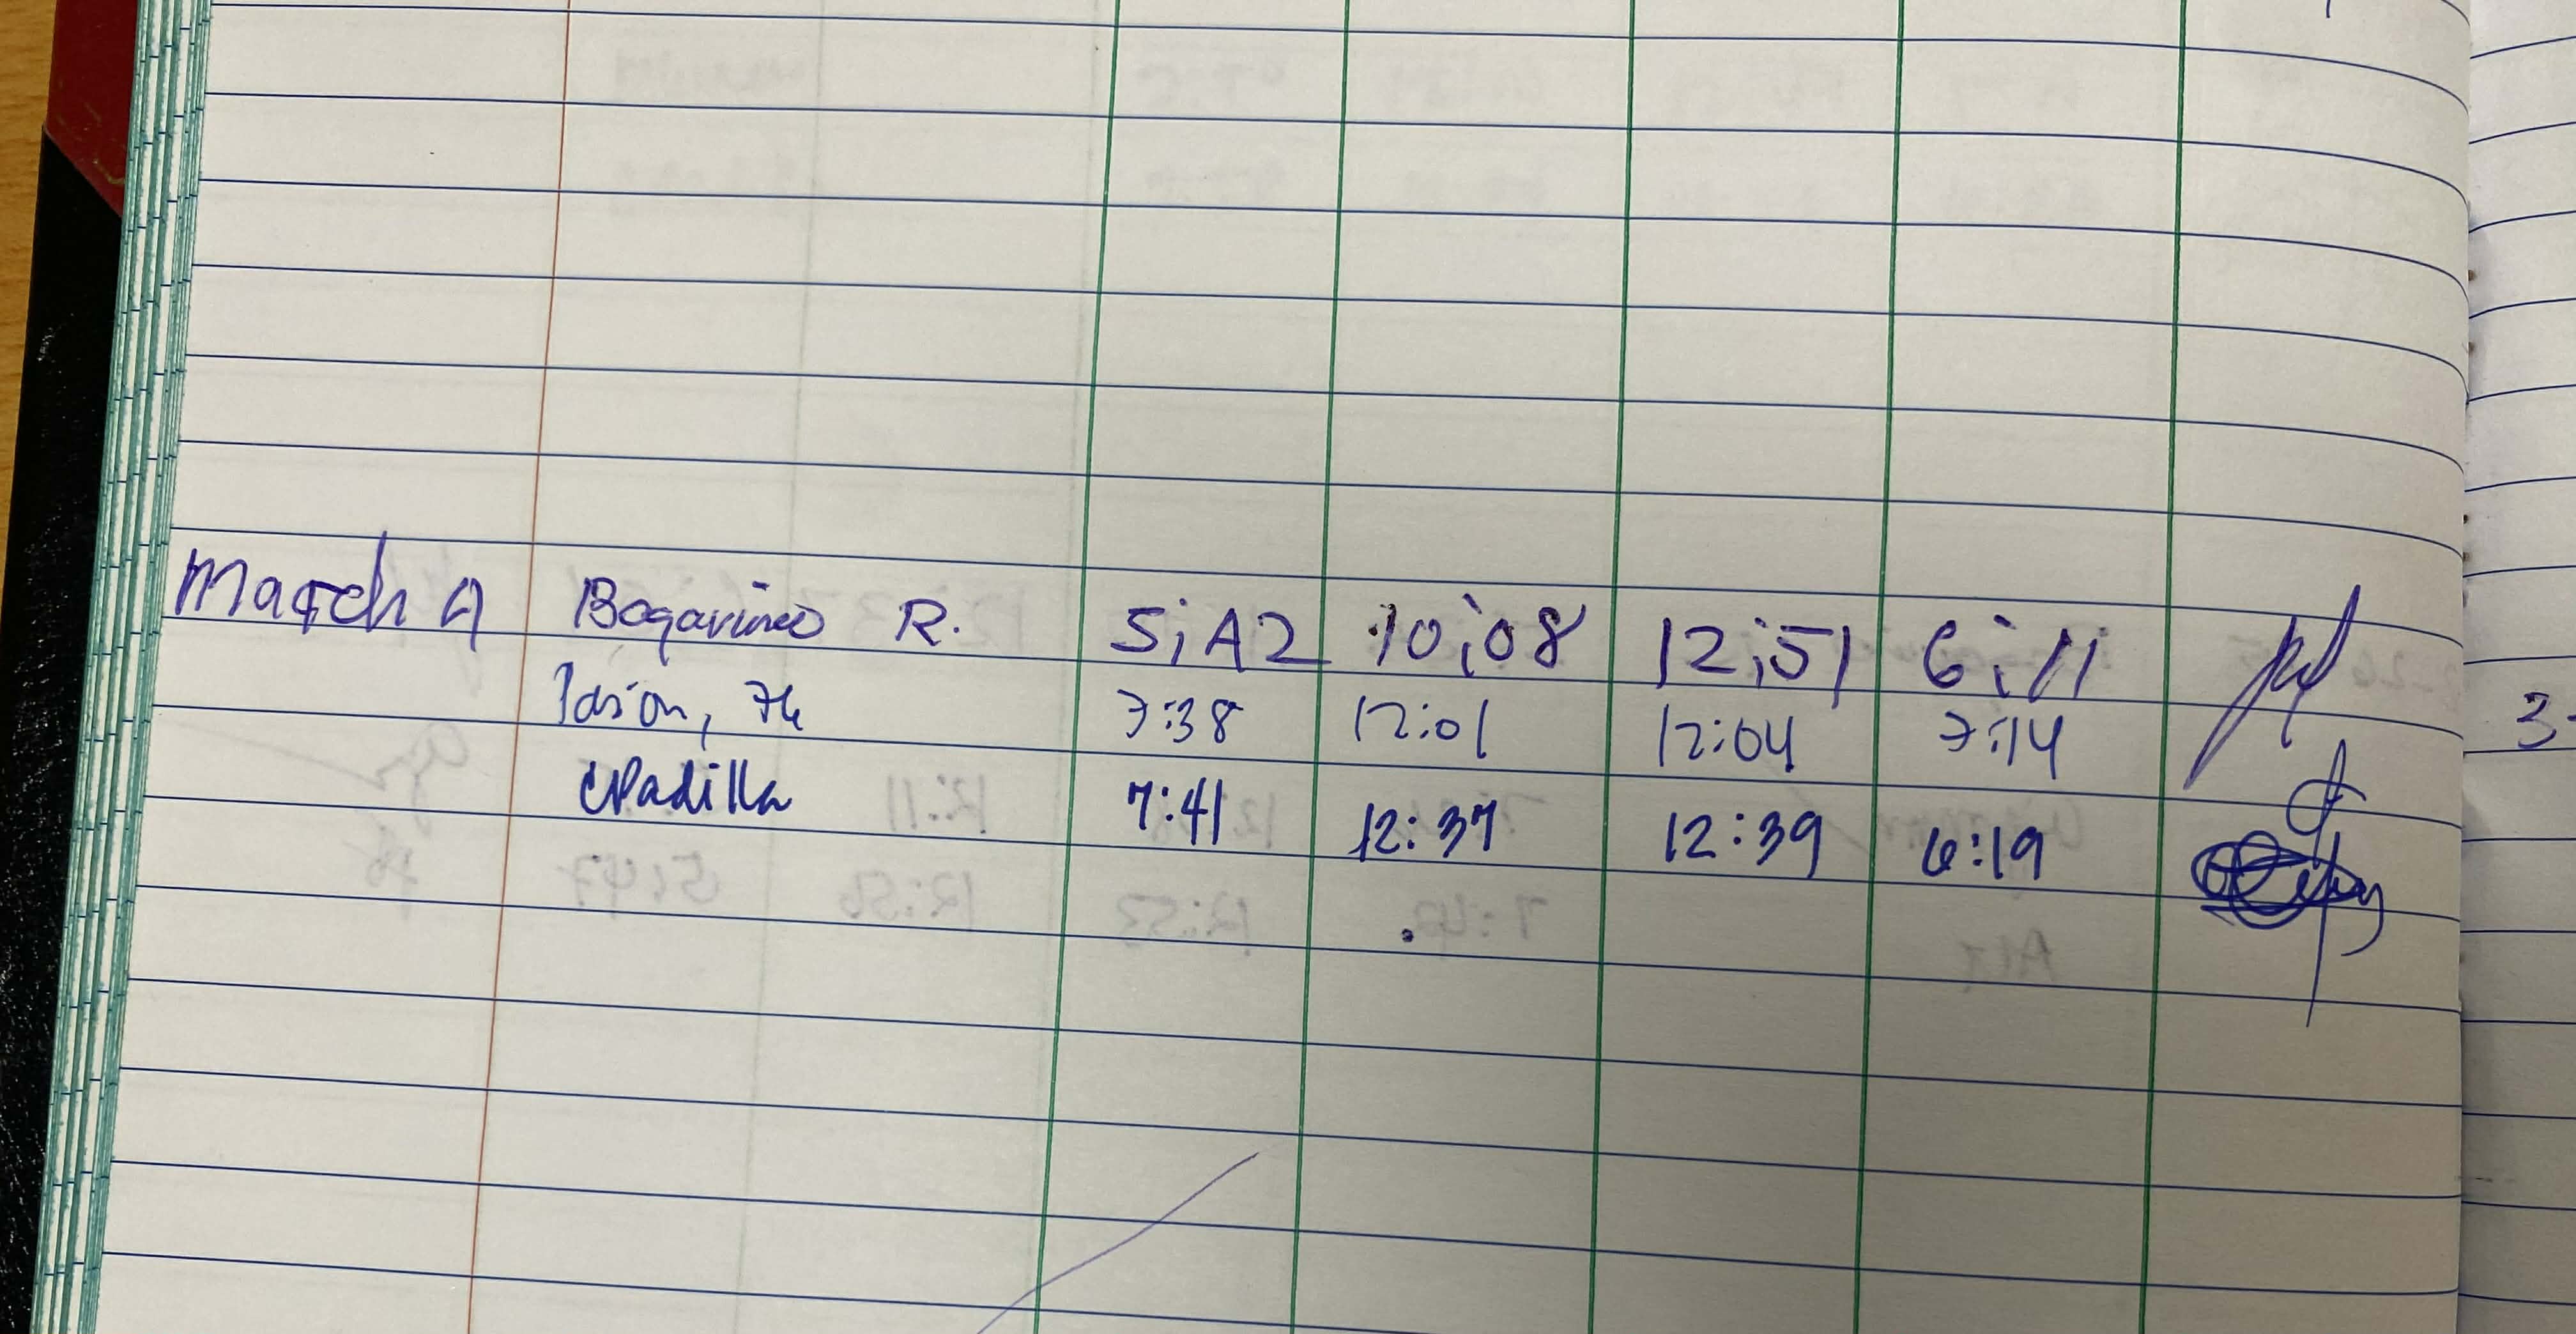 March 4 Bogarino R. 5;42 10;08 12;51 6;11
7:38 12:01 12:04 7:14
CPadilla 7:41 12:37 12:39 6:19
3-